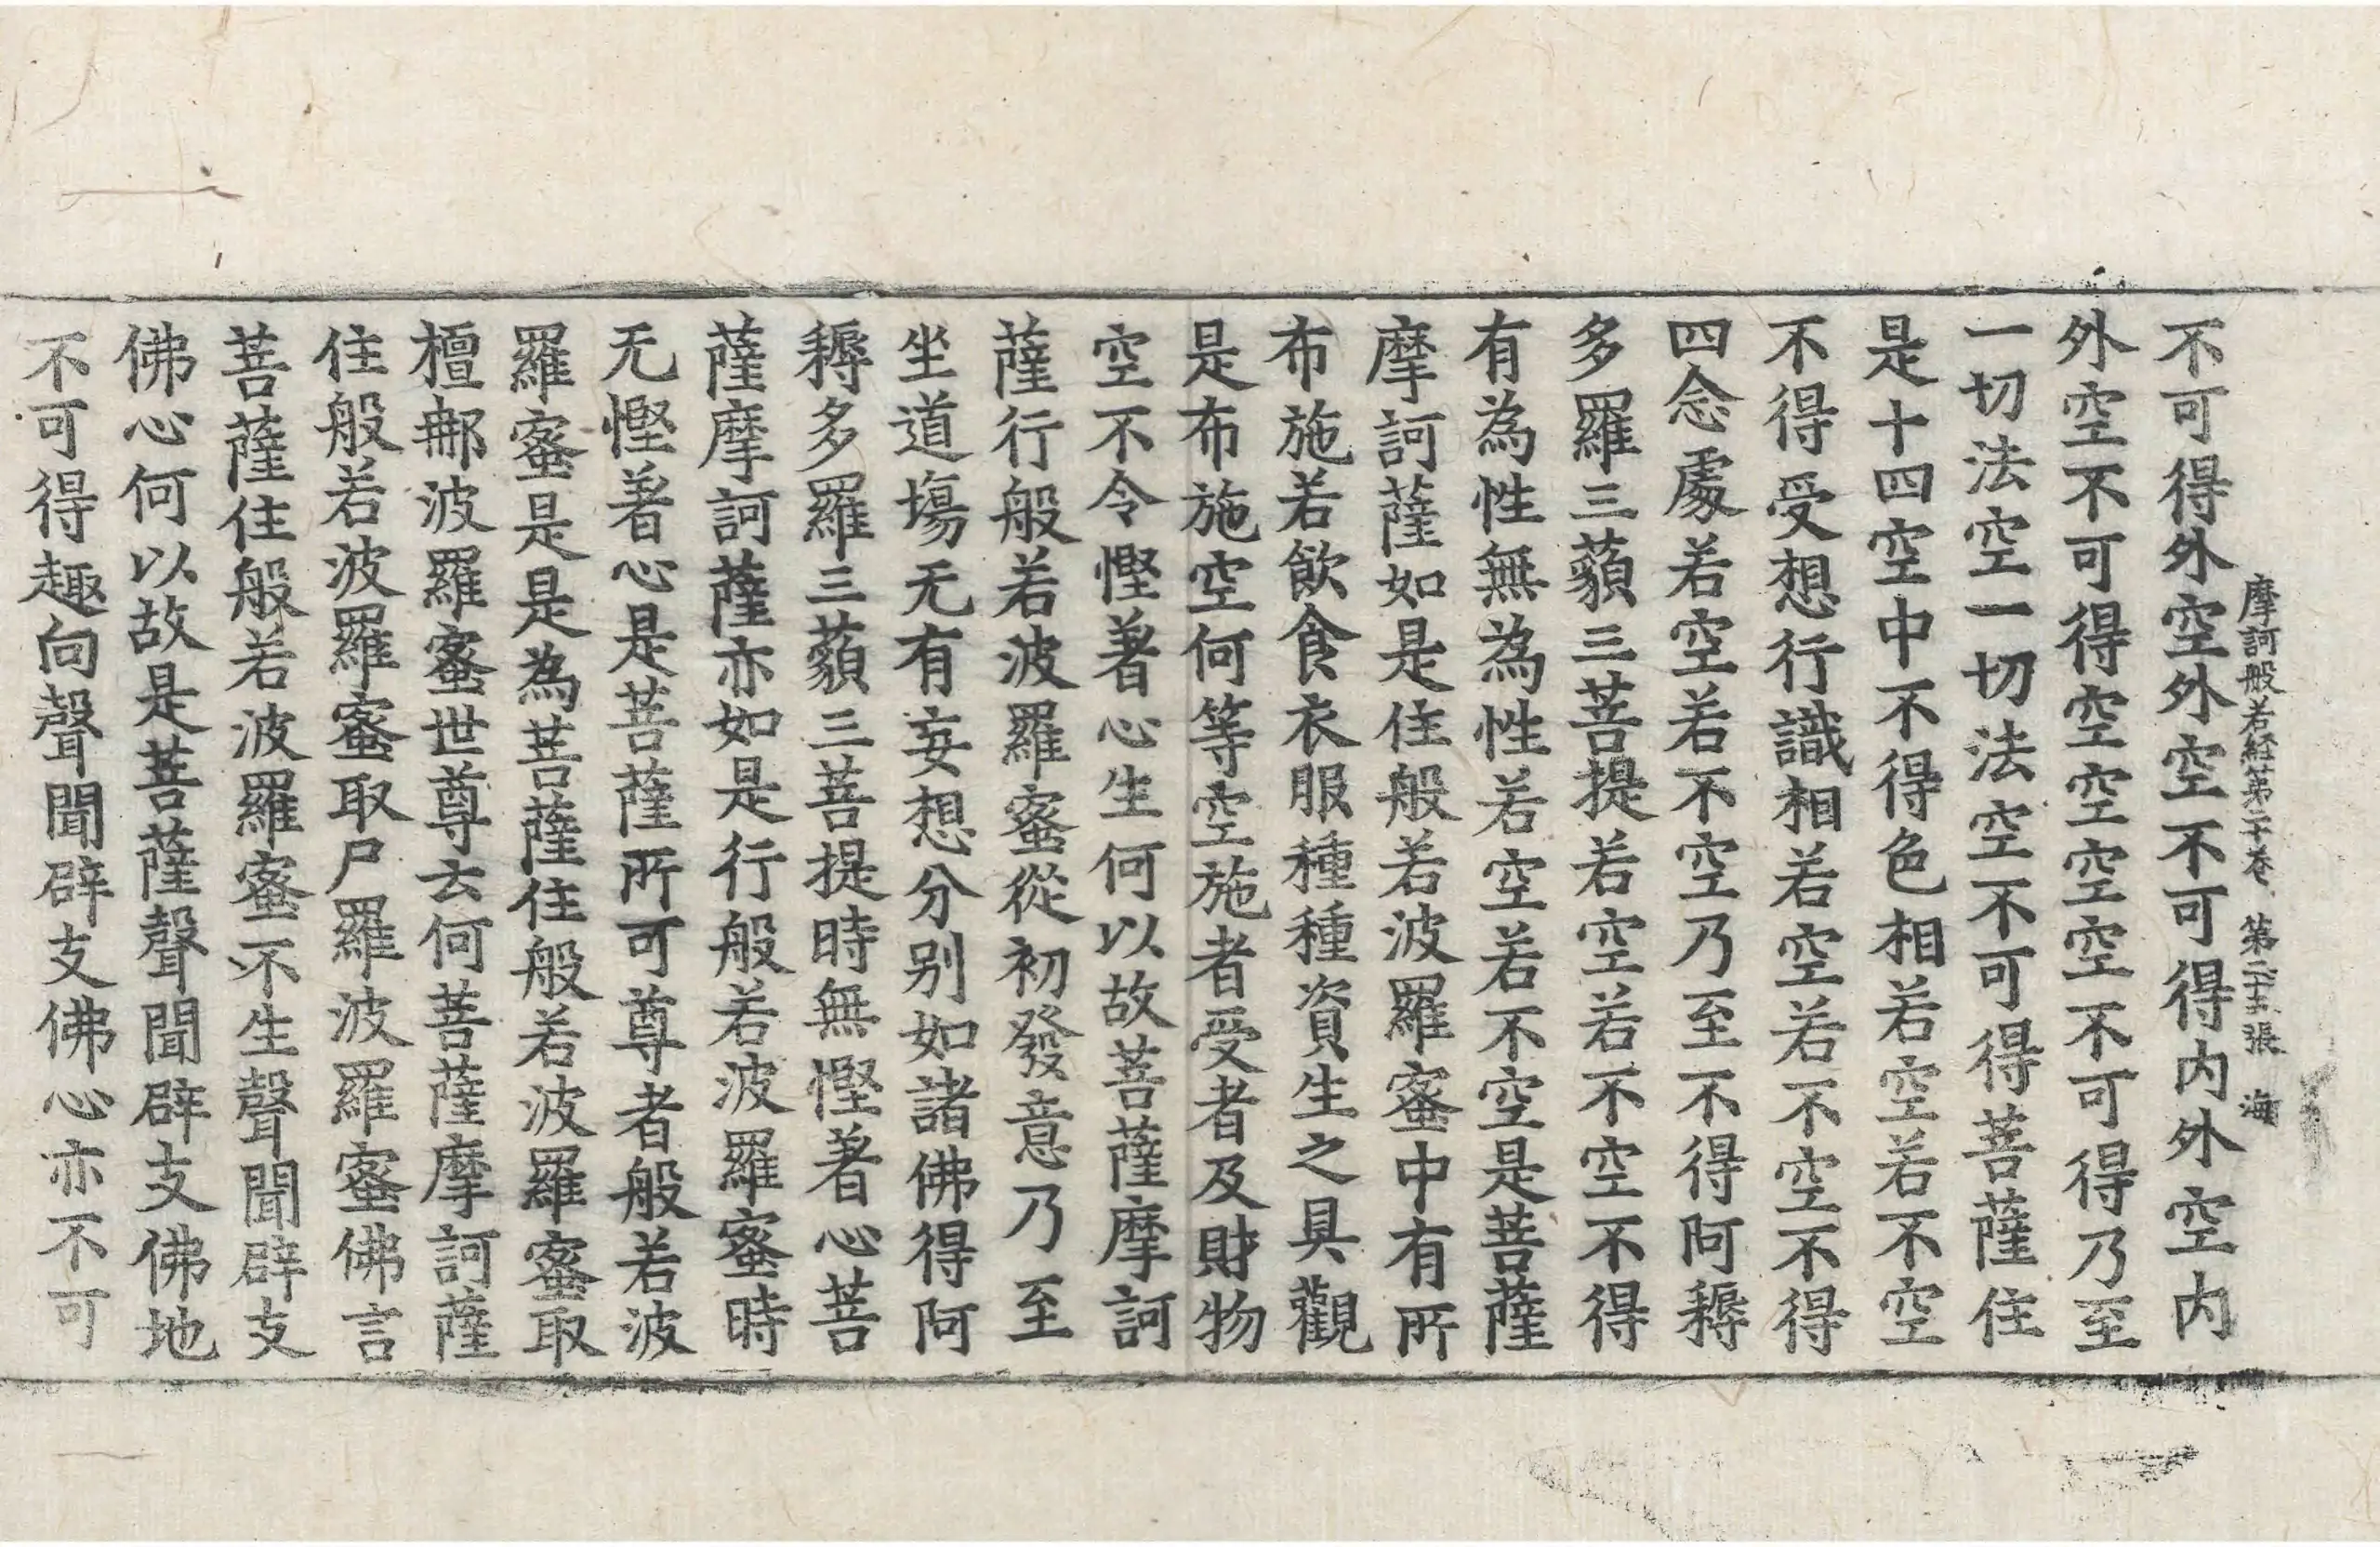 摩訶般若経第二十巻 第二十五張 海
不可得外空外空不可得内外空内
外空不可得空空空空不可得乃至
一切法空一切法空不可得菩薩住
是十四空中不得色相若空若不空
不得受想行識相若空若不空不得
四念處若空若不空乃至不得阿耨
多羅三藐三菩提若空若不空不得
有為性無為性若空若不空是菩薩
摩訶薩如是住般若波羅蜜中有所
布施若飲食衣服種種資生之具觀
是布施空何等空施者受者及財物
空不令慳著心生何以故菩薩摩訶
薩行般若波羅蜜從初發意乃至
坐道場无有妄想分別如諸佛得阿
耨多羅三藐三菩提時無慳著心菩
薩摩訶薩亦如是行般若波羅蜜時
无慳著心是菩薩所可尊者般若波
羅蜜是是為菩薩住般若波羅蜜取
檀郍波羅蜜世尊云何菩薩摩訶薩
住般若波羅蜜取尸羅波羅蜜佛言
菩薩住般若波羅蜜不生聲聞辟支
佛心何以故是菩薩聲聞辟支佛地
不可得趣向聲聞辟支佛心亦不可